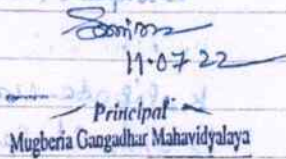 11-07-22
Principal
Mugberia Gangadhar Mahavidyalaya